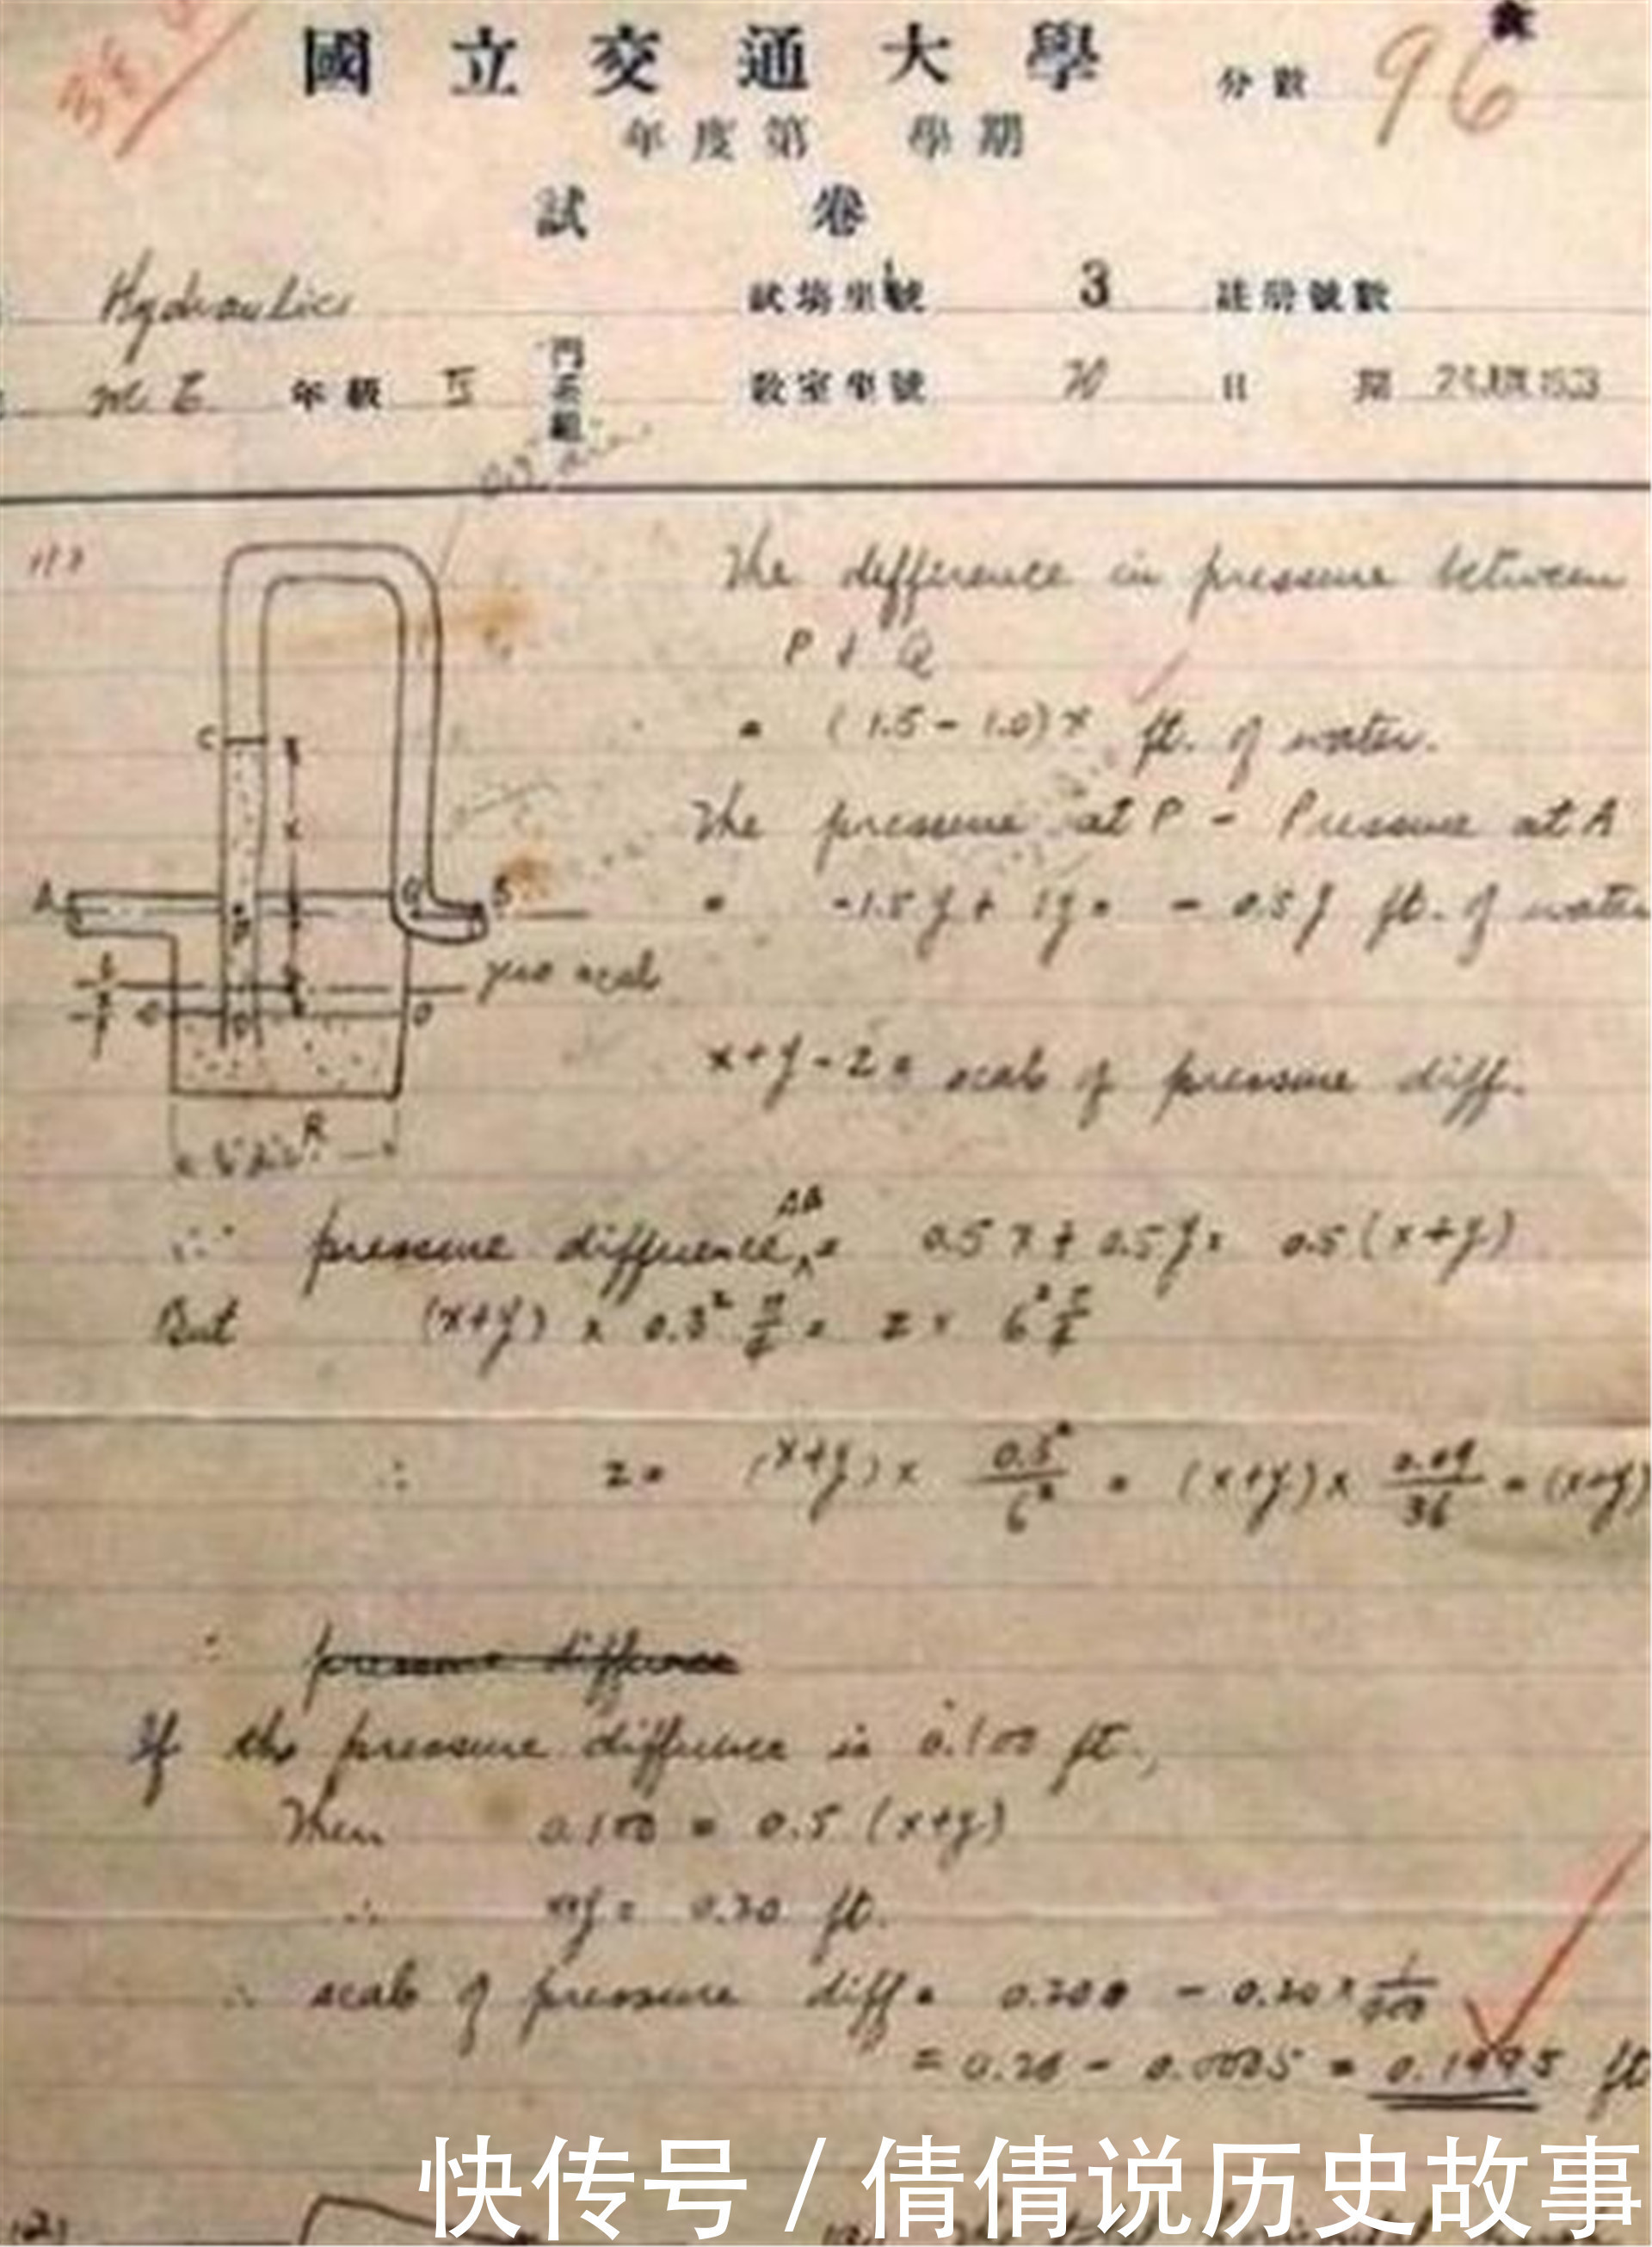 國立交通大學
分數 96
年度第 學期
試卷
Hydraulics 試場坐號 3 註冊號數
M E 年級 門系組 教室坐號 日期
The difference in pressure between
P & Q
= (1.5 - 1.0)x ft. of water.
The pressure at P - Pressure at A
= -1.5y + 1y = - 0.5y ft. of water
C
x
A
P
Q
B
zero scale
O
O
x+y-z = scale of pressure diff.
R
6" dia.
∴ pressure difference AB = 0.5x + 0.5y = 0.5(x+y)
But (x+y) x 0.3² π/4 = z x 6² π/4
∴ z = (x+y) x 0.3²/6² = (x+y) x 0.09/36 = (x+y)
pressure difference
If the pressure difference is 0.100 ft.,
Then 0.100 = 0.5 (x+y)
∴ x+y = 0.20 ft.
∴ scale of pressure diff = 0.200 - 0.20 x 1/400
= 0.20 - 0.0005 = 0.1995 ft
(2)
快传号 / 倩倩说历史故事